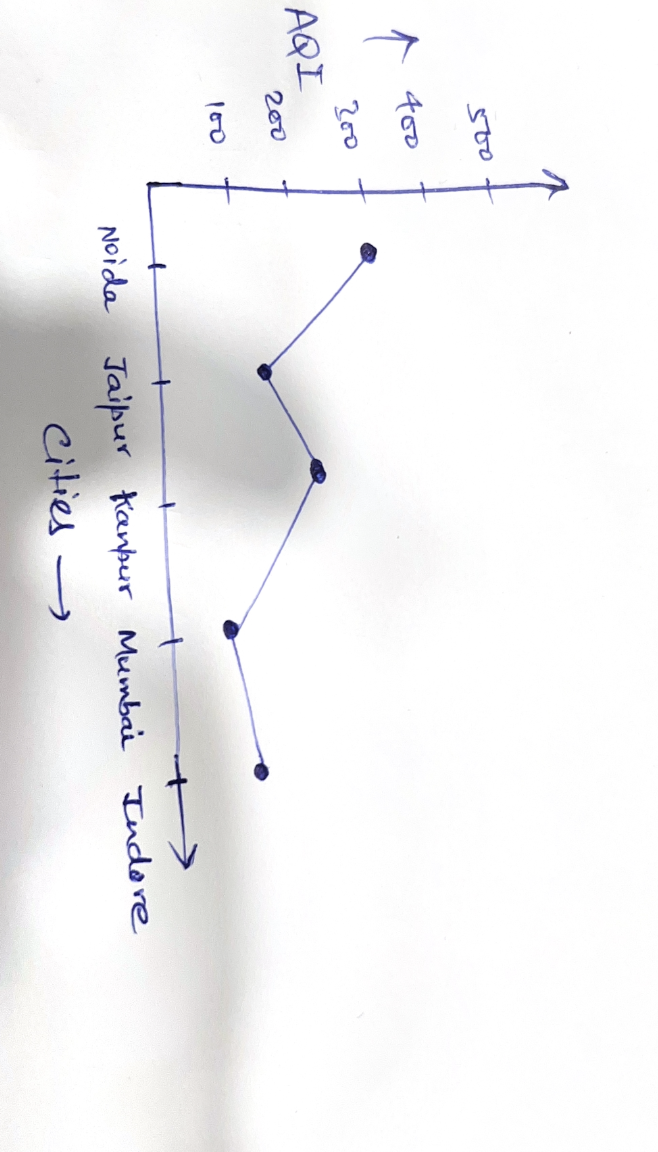 AQI →
500
400
300
200
100
Noida Jaipur Kanpur Mumbai Indore
Cities →